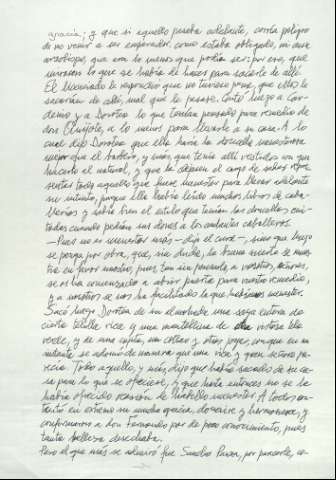 gracia; y que si aquello pasaba adelante, corría peligro
de no venir a ser emperador, como estaba obligado, ni aun
arzobispo, que era lo menos que podía ser; por eso, que
mirasen lo que se había de hacer para sacarle de allí.
El licenciado le respondió que no tuviese pena, que ellos le
sacarían de allí, mal que le pesase. Contó luego a Car-
denio y a Dorotea lo que tenían pensado para remedio de
don Quijote, a lo menos para llevarle a su casa. A lo
cual dijo Dorotea que ella haría la doncella menesterosa
mejor que el barbero, y más, que tenía allí vestidos con que
hacerlo al natural, y que la dejasen el cargo de saber repre-
sentar todo aquello que fuese menester para llevar adelante
su intento, porque ella había leído muchos libros de caba-
llerías y sabía bien el estilo que tenían las doncellas cui-
tadas cuando pedían sus dones a los andantes caballeros.
—Pues no es menester más —dijo el cura—, sino que luego
se ponga por obra, que, sin duda, la buena suerte se mues-
tra en favor nuestro, pues, tan sin pensarlo, a vosotros, señores,
se os ha comenzado a abrir puerta para vuestro remedio,
y a nosotros se nos ha facilitado la que habíamos menester.
Sacó luego Dorotea de su almohada una saya entera de
cierta telilla rica y una mantellina de otra vistosa tela
verde, y de una cajita, un collar y otras joyas, con que en un
instante se adornó de manera que una rica y gran señora pa-
recía. Todo aquello, y más, dijo que había sacado de su ca-
sa para lo que se ofreciese, y que hasta entonces no se le
había ofrecido ocasión de habello menester. A todos con-
tentó en extremo su mucha gracia, donaire y hermosura, y
confirmaron a don Fernando por de poco conocimiento, pues
tanta belleza desechaba.
Pero el que más se admiró fue Sancho Panza, por parecerle, co-